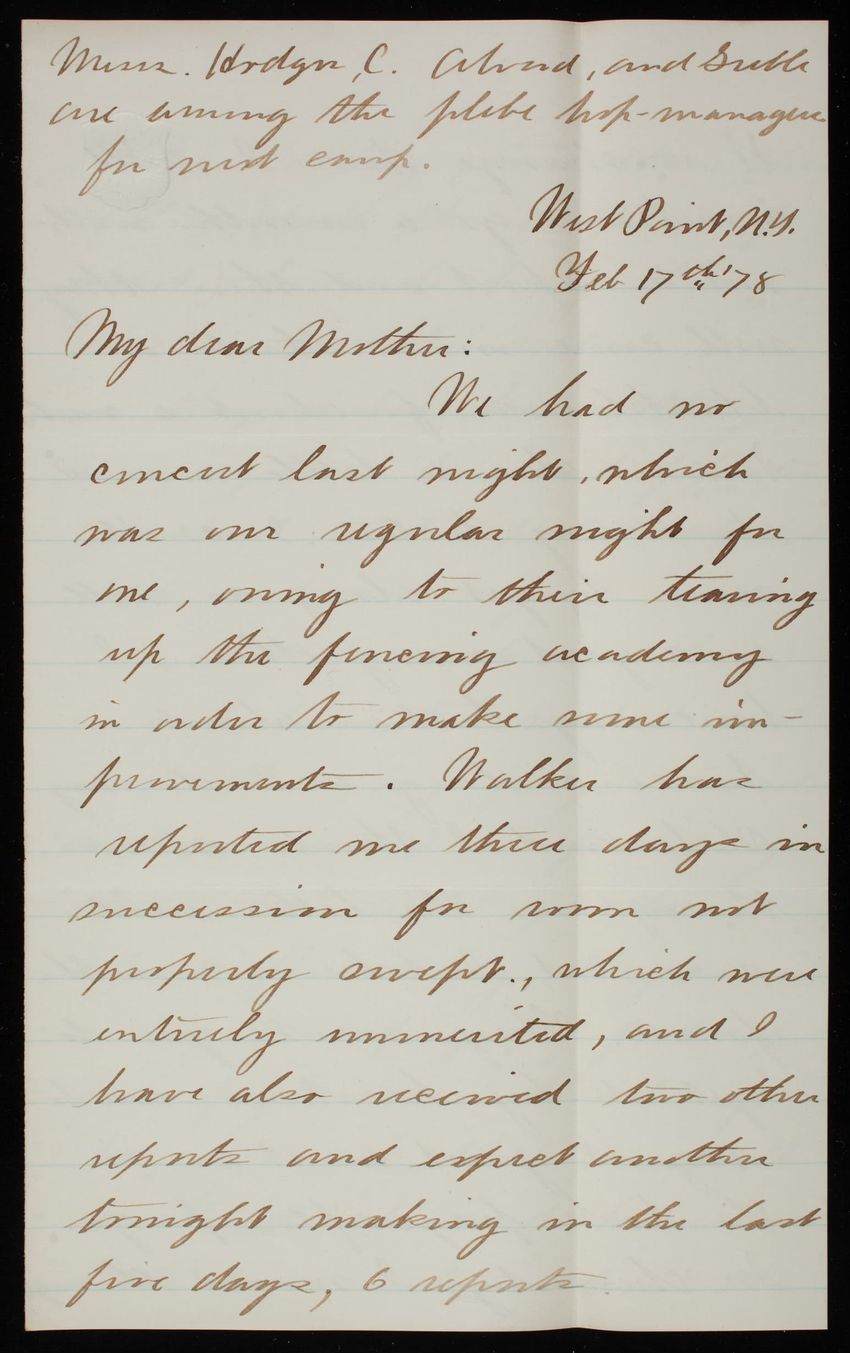 Messrs. Hodges, C. Alvord, and Gruble
are among the plebe hop-managers
for next camp.
West Point, N.Y.
Feb 17th '78
My dear Mother:
We had no
concert last night, which
was our regular night for
one, owing to their tearing
up the fencing academy
in order to make some im-
provements. Walker has
reported me three days in
succession for room not
properly swept., which were
entirely unmerited, and I
have also received two other
reports and expect another
tonight making in the last
five days, 6 reports.